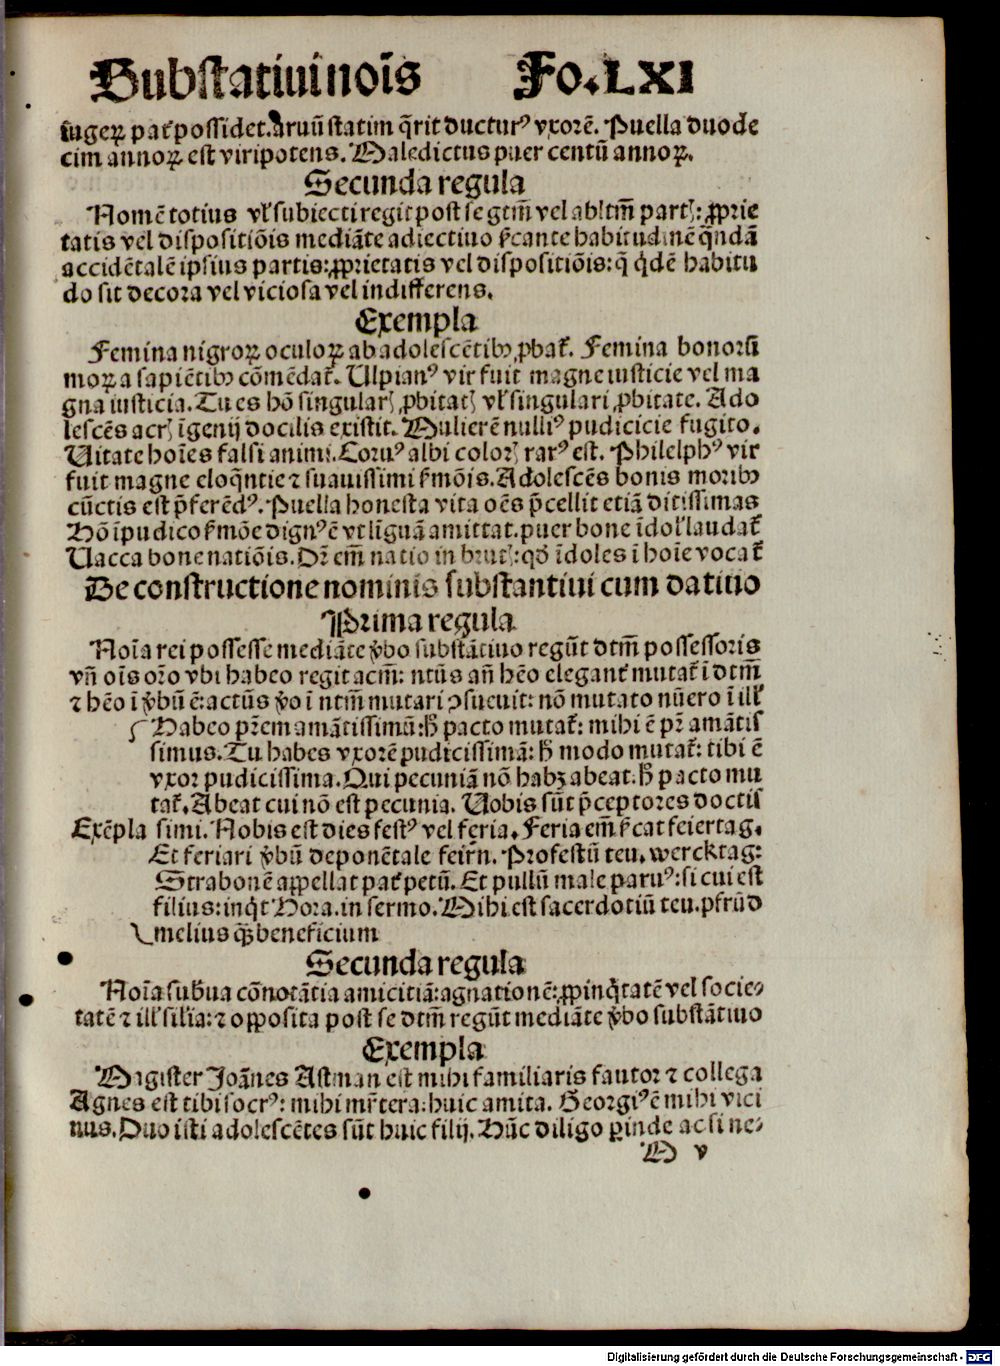 Substātiui noīs Fo. LXI
iugeꝝ pat̄ possidet. Aruū statim q̄rit ducturꝰ vxorē. Puella duode
cim annoꝝ est viripotens. Maledictus puer centū annoꝝ.
Secunda regula
Nomē totius vl' subiecti regit post se gtm̄ vel abltm̄ part: ꝓprie
tatis vel dispositiōis mediāte adiectiuo sīcante habitudinē quādā
accidētalē ipsius partis: ꝓprietatis vel dispositiōis: q̄ q'dē habitu
do sit decora vel viciosa vel indifferens.
Exempla
Femina nigroꝝ oculoꝝ ab adolescētibꝰ ꝓbat̄. Femina bonorū
moꝝ a sapiētibꝰ cōmēdat̄. Ulpianꝰ vir fuit magne iusticie vel ma
gna iusticia. Tu es hō singularꝭ ꝓbitatꝭ vl' singulari ꝓbitate. Ado
lescēs acrꝭ īgenij docilis existit. Mulierē nulliꝰ pudicicie fugito.
Uitate hoīes falsi animi. Coruꝰ albi colorꝭ rarꝰ est. Philelphꝰ vir
fuit magne eloq̄ntie ⁊ suauissimi s̄mōis. Adolescēs bonis moribꝰ
cūctis est p̄ferēdꝰ. Puella honesta vita oēs p̄cellit etiā ditissimas
Hō īpudico s̄mōe dignꝰ ē vt līguā amittat. puer bone īdol' laudat̄
Uacca bone natiōis. Dr̄ em̄ natio in brutꝭ: qd̄ īdoles ī hoīe vocat̄
De constructione nominis substantiui cum datiuo
Prima regula
Noīa rei possesse mediāte v̄bo substātiuo regūt dtm̄ possessoris
vn̄ oīs orō vbi habeo regit actm̄: ntūs an̄ hēo elegant̄ mutat̄ ī dtm̄
⁊ hēo ī v̄bū ē: actūs v̄o ī ntm̄ mutari ꝯsueuit: nō mutato nūero ī ill'
Habeo pr̄em amātissimū: h̄ pacto mutat̄: mihi ē pr̄ amātis
simus. Tu habes vxorē pudicissimā: h̄ modo mutat̄: tibi ē
vxor pudicissima. Qui pecuniā nō habꝫ abeat: h̄ pacto mu
tat̄. Abeat cui nō est pecunia. Uobis sūt p̄ceptores doctis
Exēpla simi. Nobis est dies festꝰ vel feria. Feria em̄ s̄cat feiertag.
Et feriari v̄bū deponētale feirn̄. Profestū teu. wercktag:
Strabonē appellat pat̄ petū. Et pullū male paruꝰ: si cui est
filius: inq̄t Hora. in sermo. Mihi est sacerdotiū teu. pfrūd
melius q̄ꝫ beneficium
Secunda regula
Noīa sub̄ua cōnotātia amicitiā: agnationē: ꝓpinq'tatē vel socie-
tatē ⁊ ill' silia: ⁊ opposita post se dtm̄ regūt mediāte v̄bo substātiuo
Exempla
Magister Joānes Astman est mihi familiaris fautor ⁊ collega
Agnes est tibi socrꝰ: mihi mr̄tera: huic amita. Georgiꝰ ē mihi vici
nus. Duo isti adolescētes sūt huic filij. Hūc diligo ꝑinde ac si ne-
M v
Digitalisierung gefördert durch die Deutsche Forschungsgemeinschaft - DFG